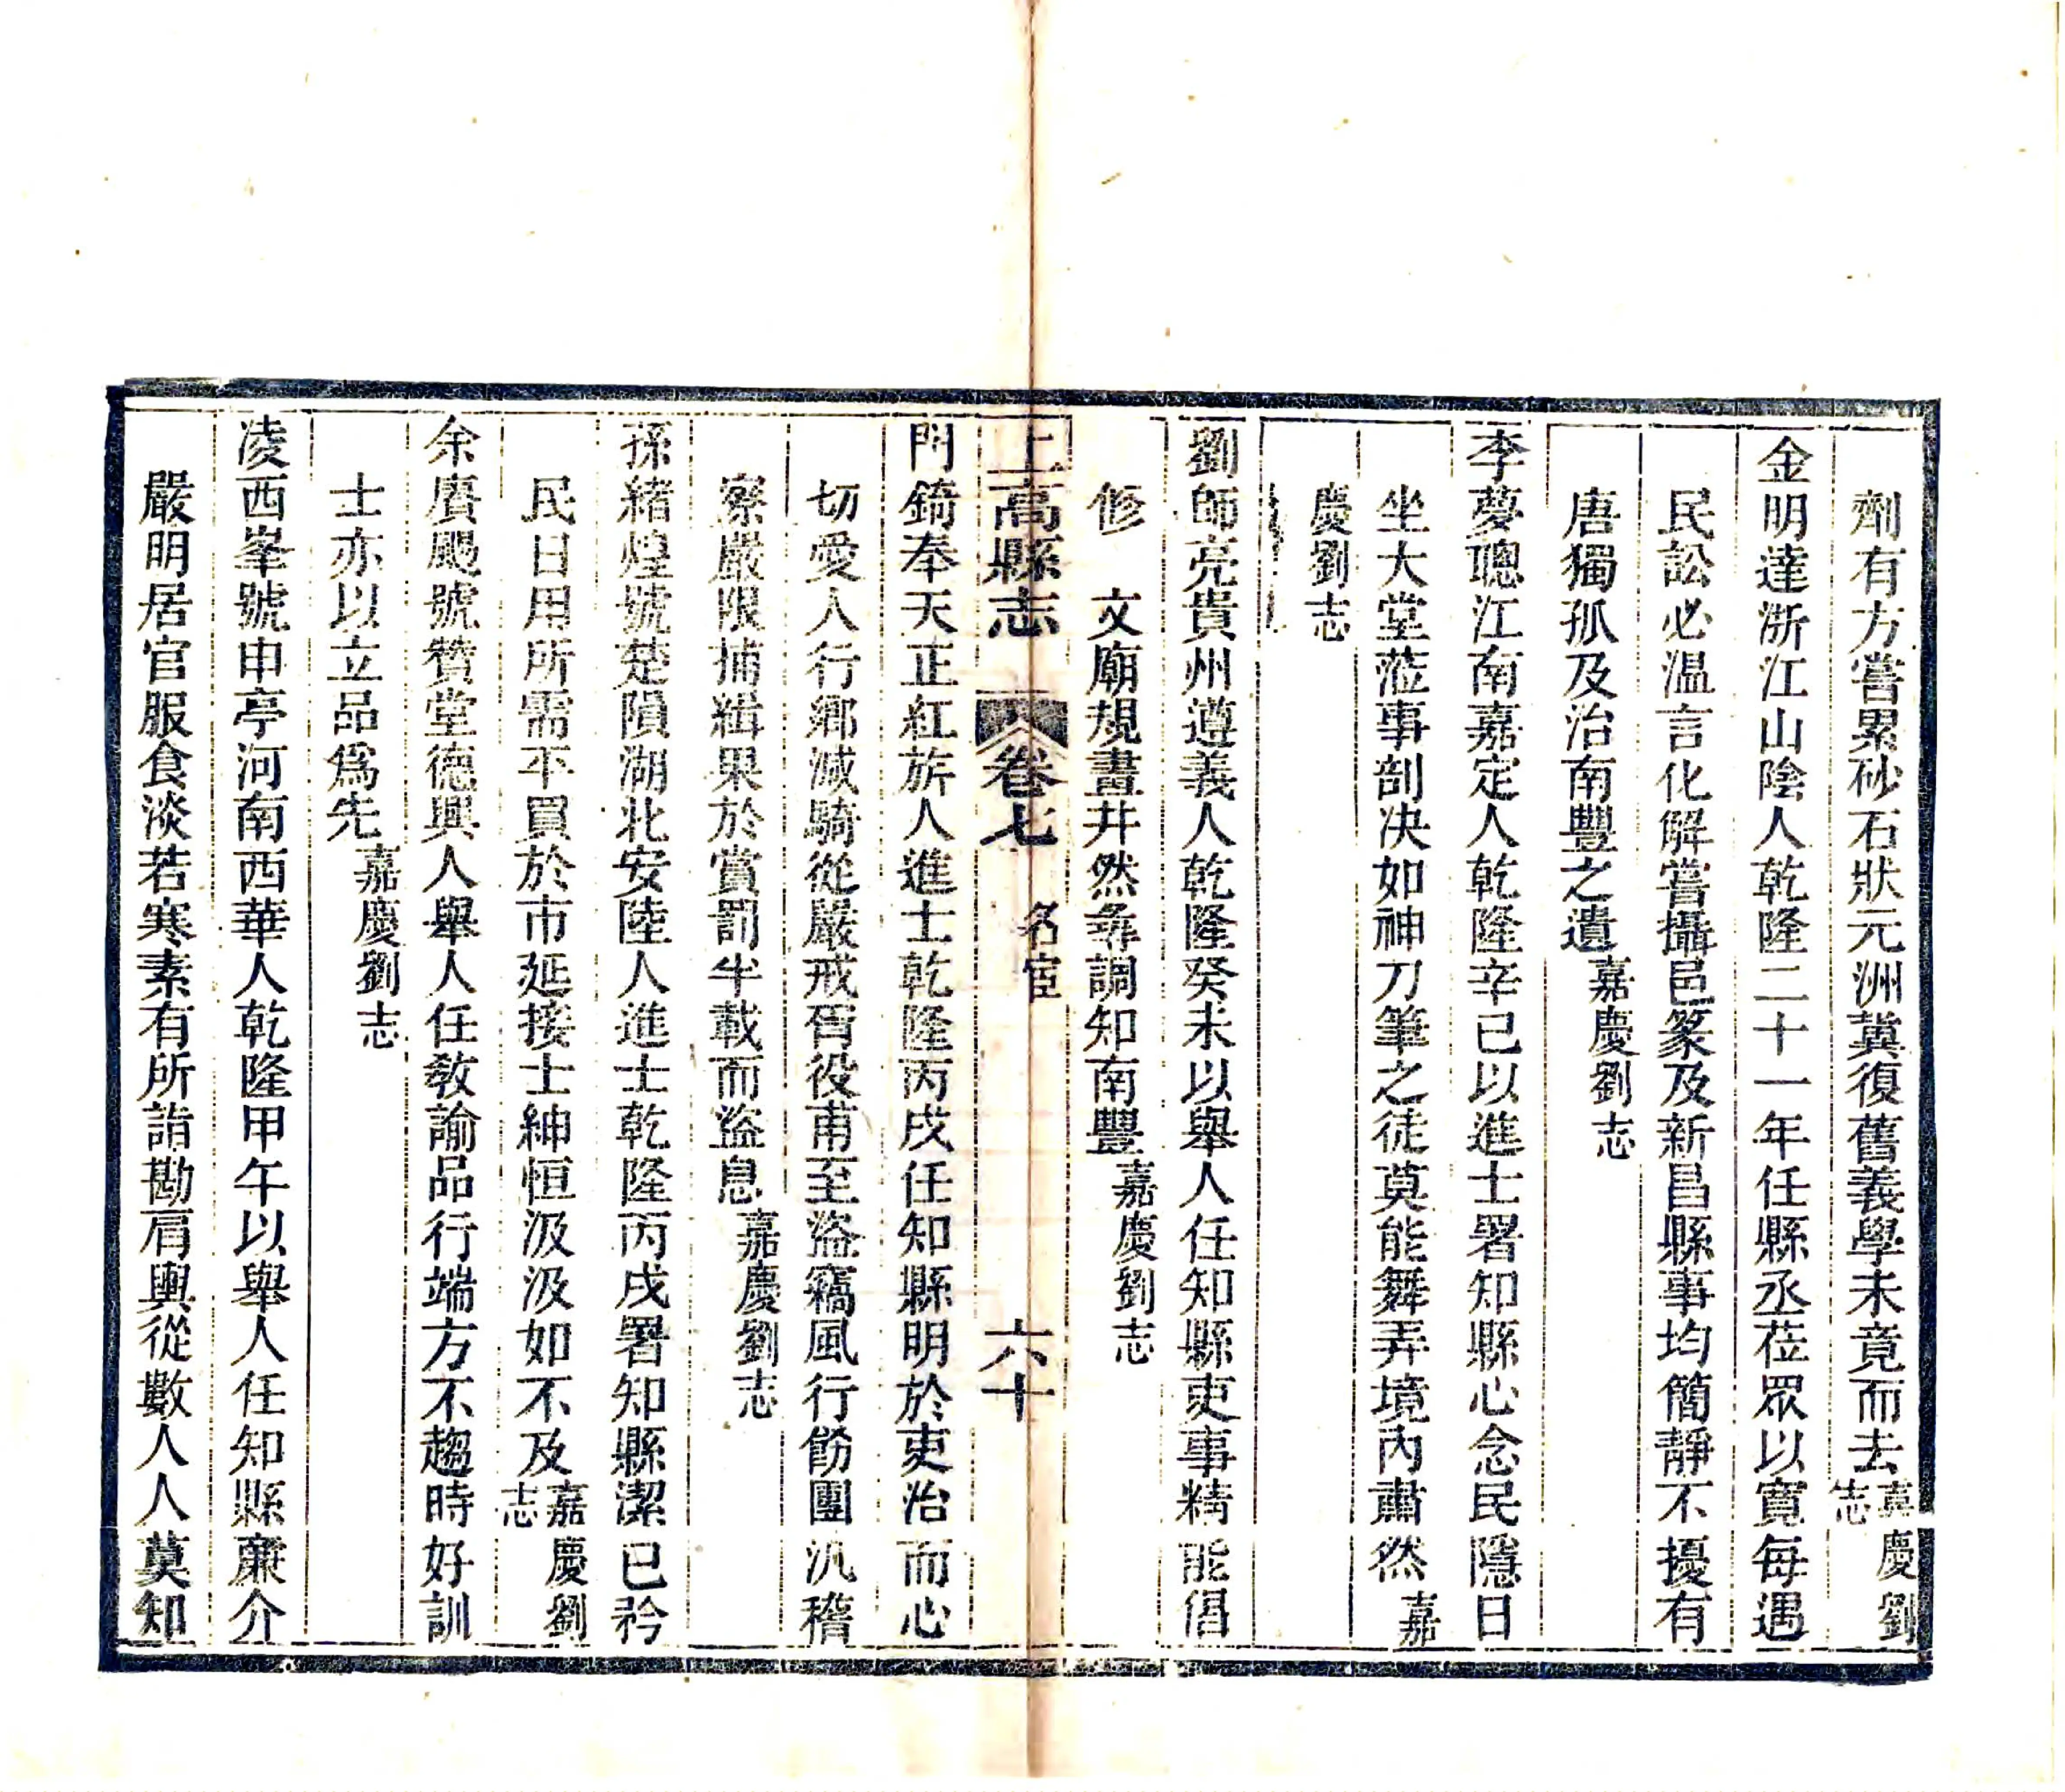 劑有方嘗累砂石狀元洲冀復舊義學未竟而去嘉慶劉志
金明達浙江山陰人乾隆二十一年任縣丞莅眾以寬每遇
民訟必溫言化解嘗攝邑篆及新昌縣事均簡靜不擾有
唐獨孤及治南豐之遺嘉慶劉志
李夢聰江南嘉定人乾隆辛巳以進士署知縣心念民隱日
坐大堂蒞事剖决如神刀筆之徒莫能舞弄境內肅然嘉
慶劉志
劉師亮貴州遵義人乾隆癸未以舉人任知縣吏事精能倡
修 文廟規畫井然尋調知南豐嘉慶劉志
上高縣志 卷七 名宦 六十
門錡奉天正紅旂人進士乾隆丙戌任知縣明於吏治而心
切愛人行鄉減騎從嚴戒胥役甫至盜竊風行飭團汎稽
察嚴限捕緝果於賞罰半載而盜息嘉慶劉志
孫緒煌號楚隕湖北安陸人進士乾隆丙戌署知縣潔已矜
民日用所需平買於市延接士紳恒汲汲如不及嘉慶劉志
余賡颺號贊堂德興人舉人任敎諭品行端方不趨時好訓
士亦以立品爲先嘉慶劉志
凌西峯號申亭河南西華人乾隆甲午以舉人任知縣廉介
嚴明居官服食淡若寒素有所詣勘肩輿從數人人莫知